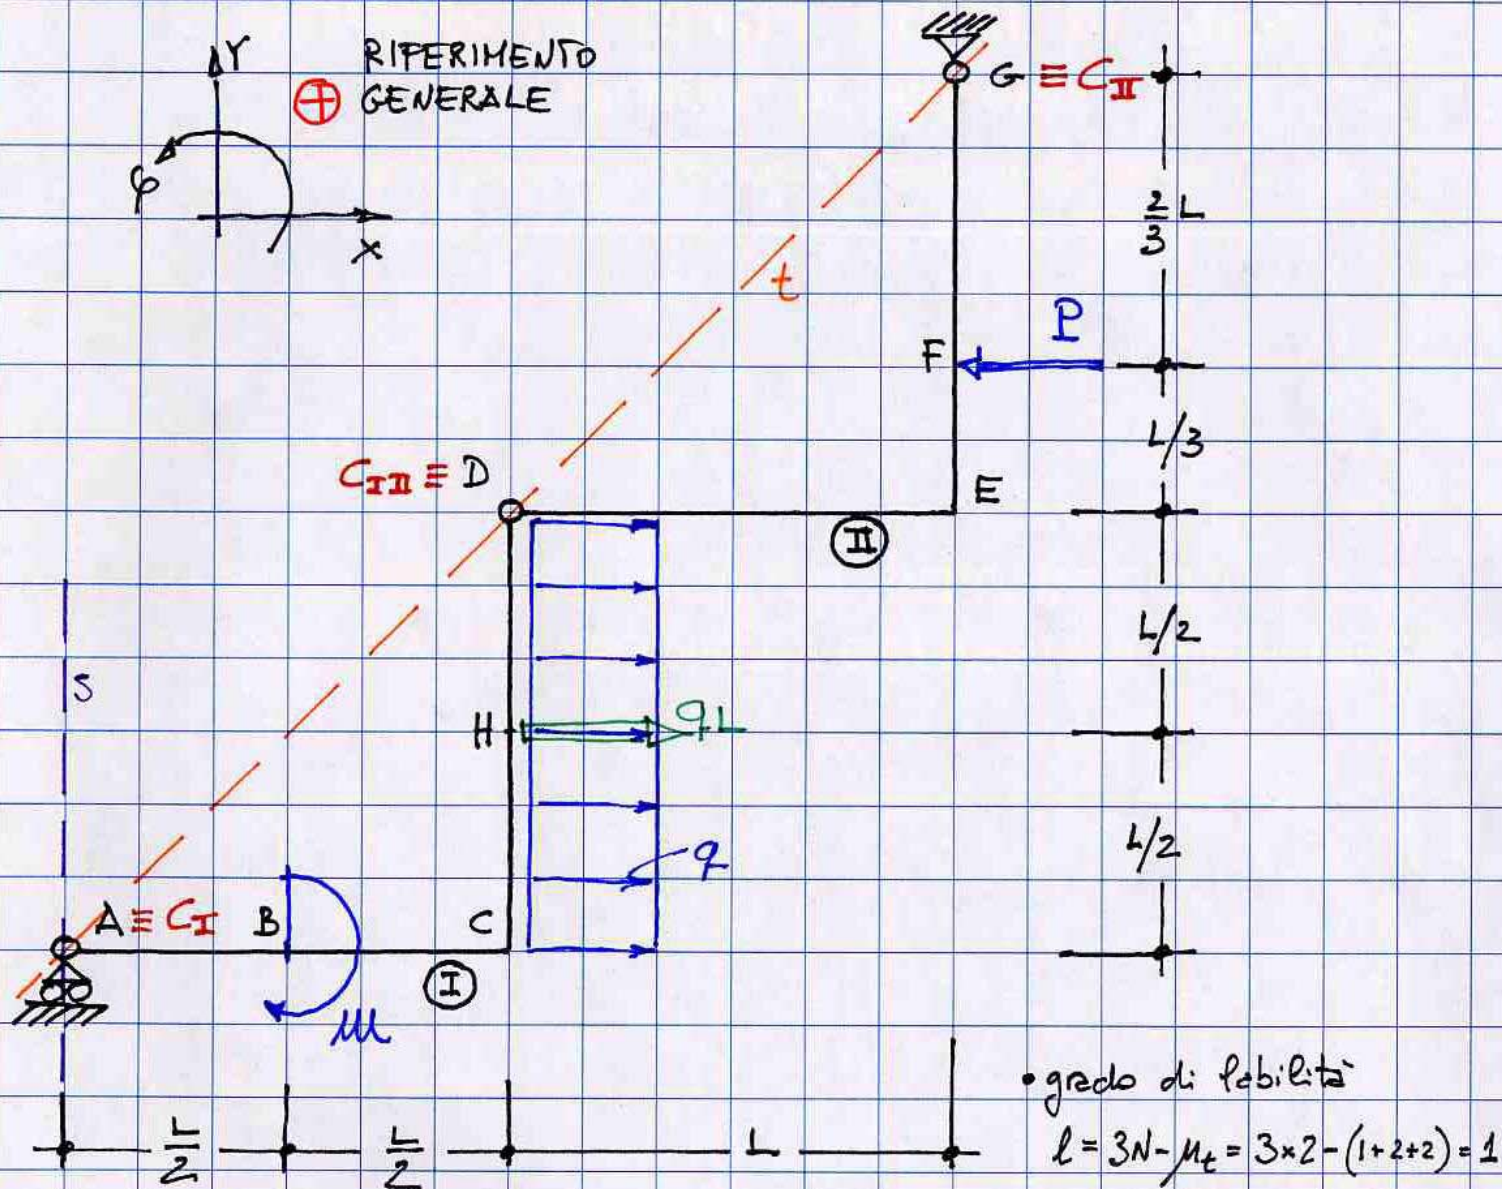 Y
RIFERIMENTO
⊕ GENERALE
φ
X
G ≡ C_II
2/3 L
t
P
F
L/3
C_I II ≡ D
E
II
L/2
S
H
qL
q
L/2
A ≡ C_I
B
C
I
M
• grado di labilità
L/2
L/2
L
l = 3N - μ_t = 3×2 - (1+2+2) = 1